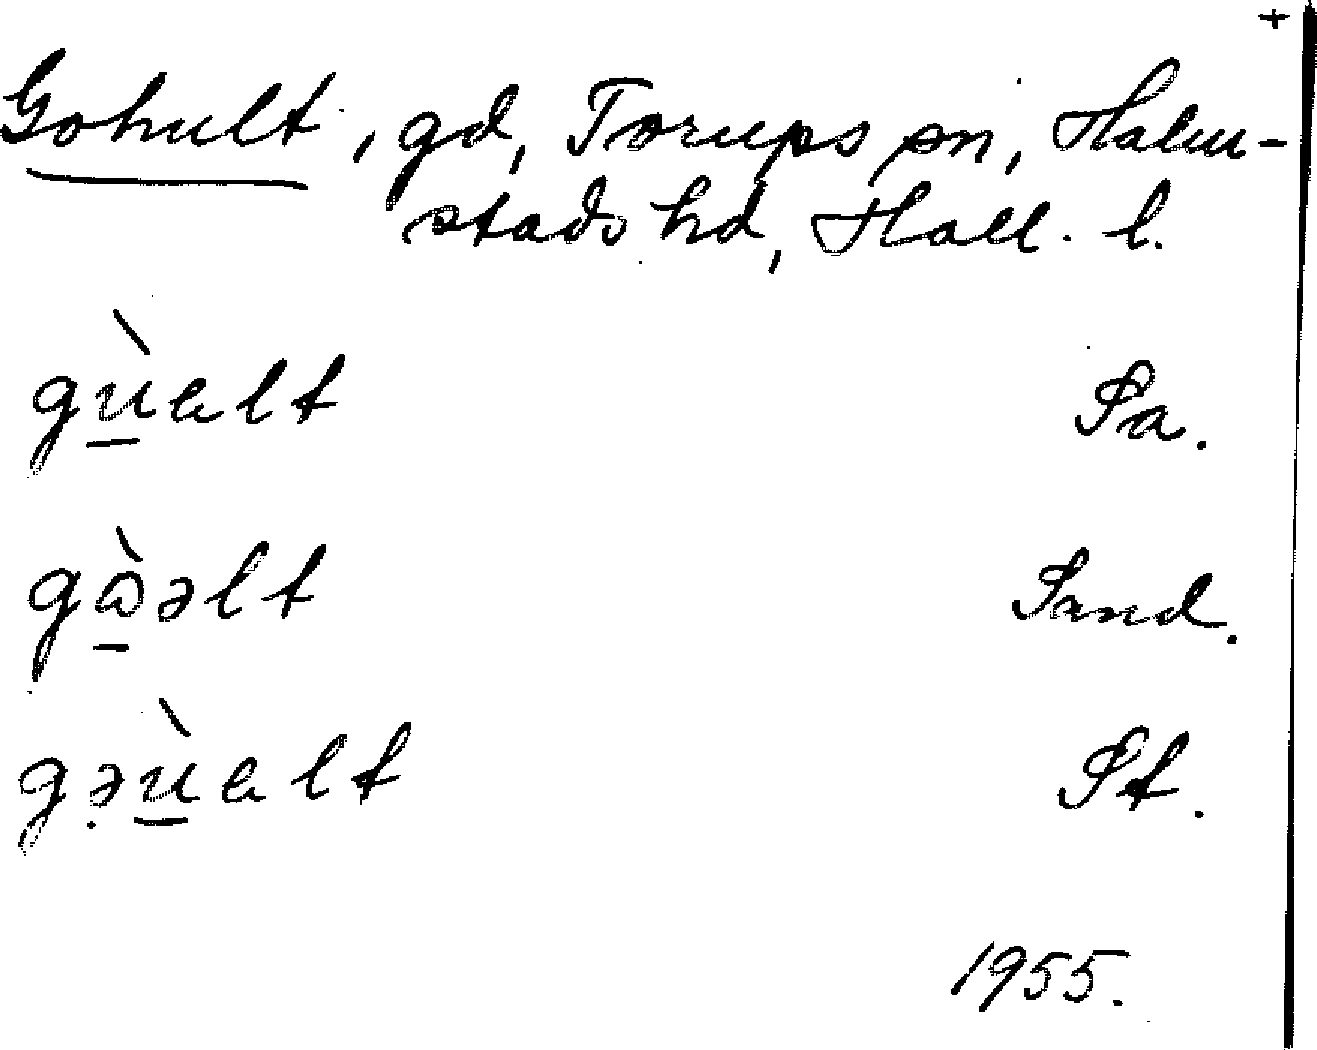 +
Gohult, gd, Torups sn, Halm-
stads hd, Hall. l.
gù̲ɐlt Sa.
gɷ̲̀əlt Sand.
gə̣ù̲ɐlt St.
1955.